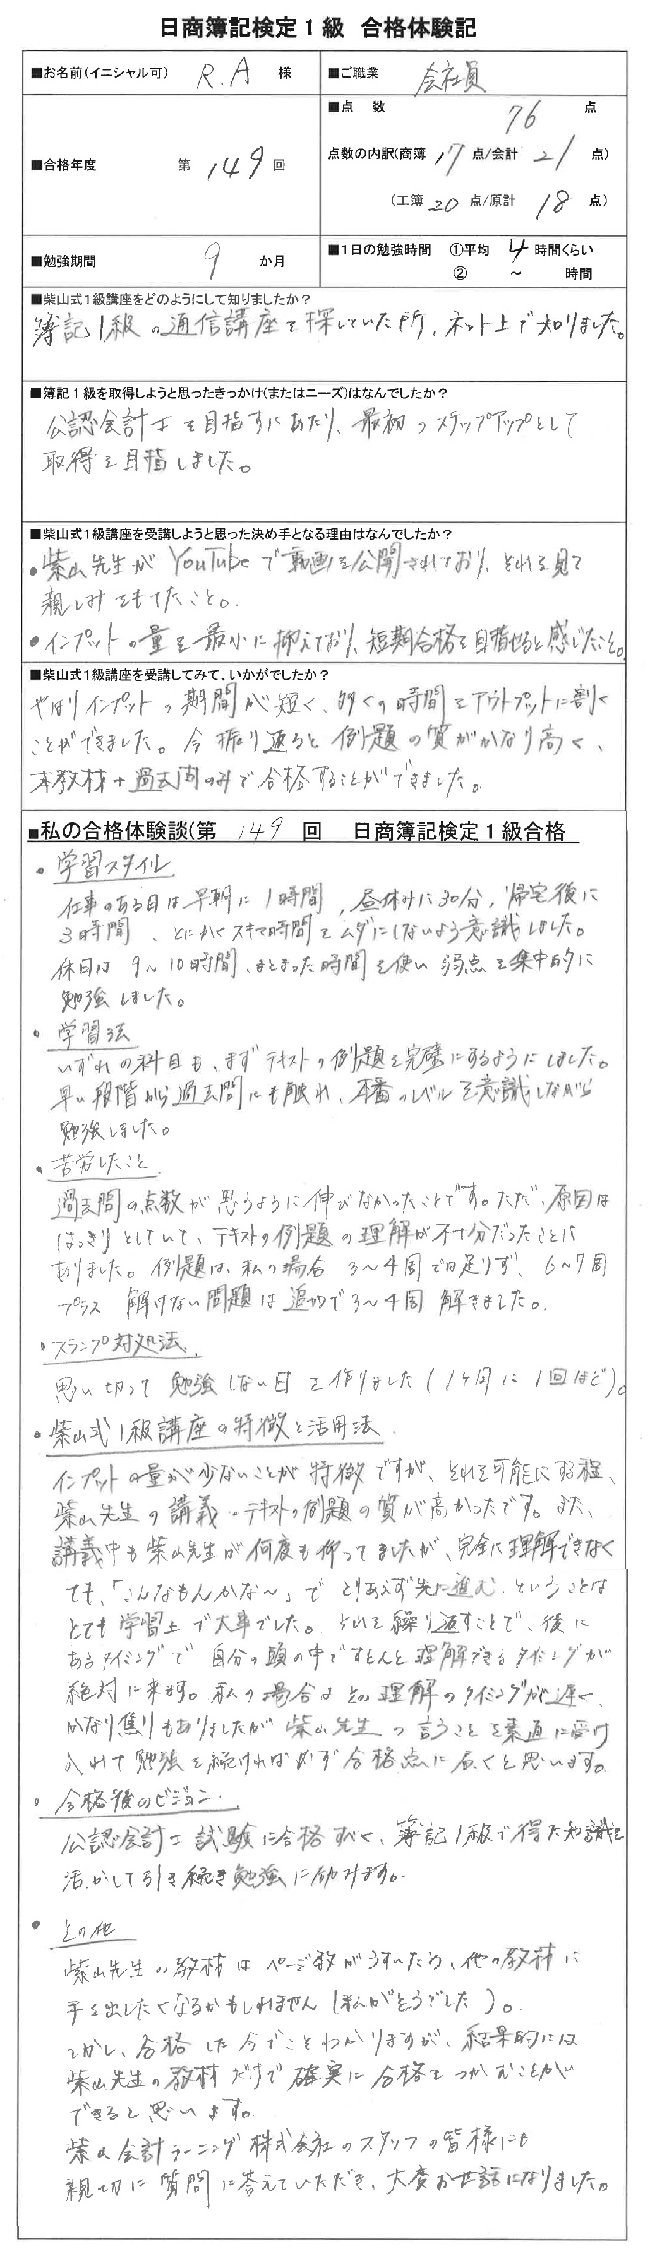 日商簿記検定1級 合格体験記
■お名前(イニシャル可) R.A 様
■ご職業 会社員
■合格年度 第 149 回
■点 数 76 点
点数の内訳(商簿 17 点/会計 21 点)
(工簿 20 点/原計 18 点)
■勉強期間 9 か月
■1日の勉強時間 ①平均 4 時間くらい
② ～ 時間
■柴山式1級講座をどのようにして知りましたか?
簿記1級の通信講座を探していた所、ネット上で知りました。
■簿記1級を取得しようと思ったきっかけ(またはニーズ)はなんでしたか?
公認会計士を目指すにあたり、最初のステップアップとして
取得を目指しました。
■柴山式1級講座を受講しようと思った決め手となる理由はなんでしたか?
・柴山先生がYouTubeで動画を公開されており、それを見て
親しみをもてたこと。
・インプットの量を最小に抑えており、短期合格を目指せると感じたこと。
■柴山式1級講座を受講してみて、いかがでしたか?
やはりインプットの期間が短く、多くの時間をアウトプットに割く
ことができました。今振り返ると例題の質がかなり高く、
本教材+過去問のみで合格することができました。
■私の合格体験談(第 149 回 日商簿記検定1級合格
・学習スタイル
仕事のある日は早朝に1時間、昼休みに30分、帰宅後に
3時間、とにかくスキマ時間をムダにしないよう意識しました。
休日は9～10時間、まとまった時間を使い弱点を集中的に
勉強しました。
・学習法
いずれの科目も、まずテキストの例題を完璧にするようにしました。
早い段階から過去問にも触れ、本番のレベルを意識しながら
勉強しました。
・苦労したこと
過去問の点数が思うように伸びなかったことです。ただ、原因は
はっきりとしていて、テキストの例題の理解が不十分だったことに
ありました。例題は、私の場合3～4周では足りず、6～7周
プラス 解けない問題は追加で3～4周 解きました。
・スランプ対処法
思い切って勉強しない日を作りました(1ヶ月に1回ほど)。
・柴山式1級講座の特徴と活用法
インプットの量が少ないことが特徴ですが、それを可能にする程、
柴山先生の講義・テキストの例題の質が高かったです。また、
講義中も柴山先生が何度も仰ってましたが、完全に理解できなく
ても、「こんなもんかな～」でとりあえず先に進むということは
とても学習上で大事でした。それを繰り返すことで、後に
あるタイミングで自分の頭の中ですとんと理解できるタイミングが
絶対に来ます。私の場合はその理解のタイミングが遅く、
かなり焦りもありましたが柴山先生の言うことを素直に受け
入れて勉強を続ければ必ず合格点に届くと思います。
・合格後のビジョン
公認会計士試験に合格すべく、簿記1級で得た知識を
活かして引き続き勉強に励みます。
・その他
柴山先生の教材はページ数がうすいため、他の教材に
手を出したくなるかもしれません(私がそうでした)。
しかし、合格した今でこそわかりますが、結果的には
柴山先生の教材だけで確実に合格をつかむことが
できると思います。
柴山会計ラーニング株式会社のスタッフの皆様にも
親切に質問に答えていただき、大変お世話になりました。